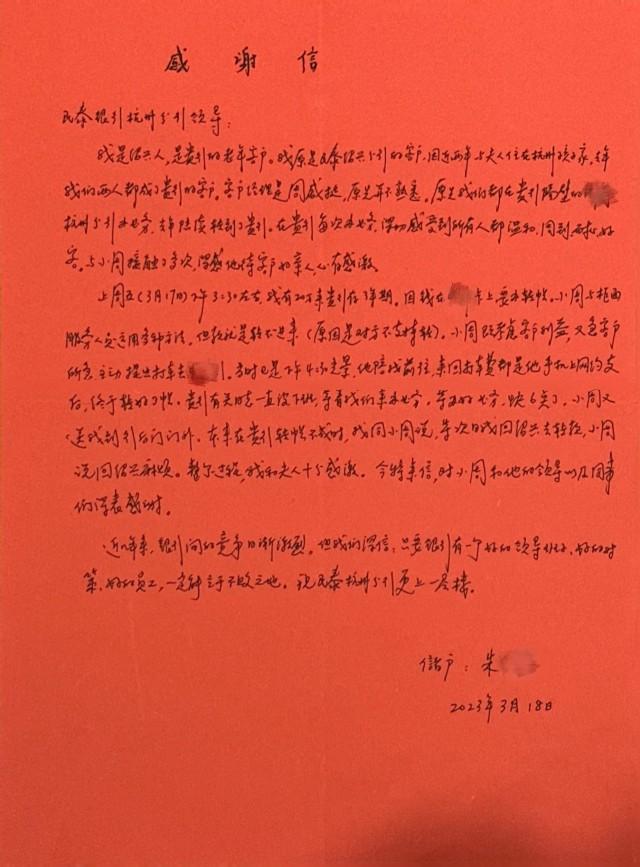 感谢信
民泰银行杭州分行领导：
我是绍兴人，是贵行的老年客户。我原是民泰绍兴分行的客户，因近两年与夫人住在杭州孩子家，去年
我们两人都成了贵行的客户。客户经理是周威挺，原先并不熟悉，原先我们都在贵行隔壁的
杭州分行办业务，去年陆续转到了贵行。在贵行每次办业务，深切感受到所有人都温和、周到、耐心、好
客。与小周接触了多次，深感他待客户如亲人，心存感激。
上周五（3月17日）下午3:30左右，我有20万来贵行存1年期。因钱在 卡上要办转帐。小周与柜面
服务人员运用多种方法，但钱就是转不进来（原因是对方不支持转）。小周既考虑客户利益，又急客户
所急，主动提出打车去 行。当时已是下午4点光景，他陪我前往，来回打车费都是他手机上网约支
后，终于转好了帐。贵行有关同志一直没下班，等着我们来办业务。等办好业务，快6点了，小周又
送我到行后门门外。本来在贵行转帐不成时，我同小周说，等次日我回绍兴去转钱，小周
说回绍兴麻烦。整个过程，我和夫人十分感激。今特来信，对小周和他的领导以及同事
们深表感谢。
近几年来，银行间的竞争日渐激烈。但我们深信：只要银行有一个好的领导班子、好的对
策、好的员工，一定能立于不败之地。祝民泰杭州分行更上一层楼。
储户：朱
2023年3月18日